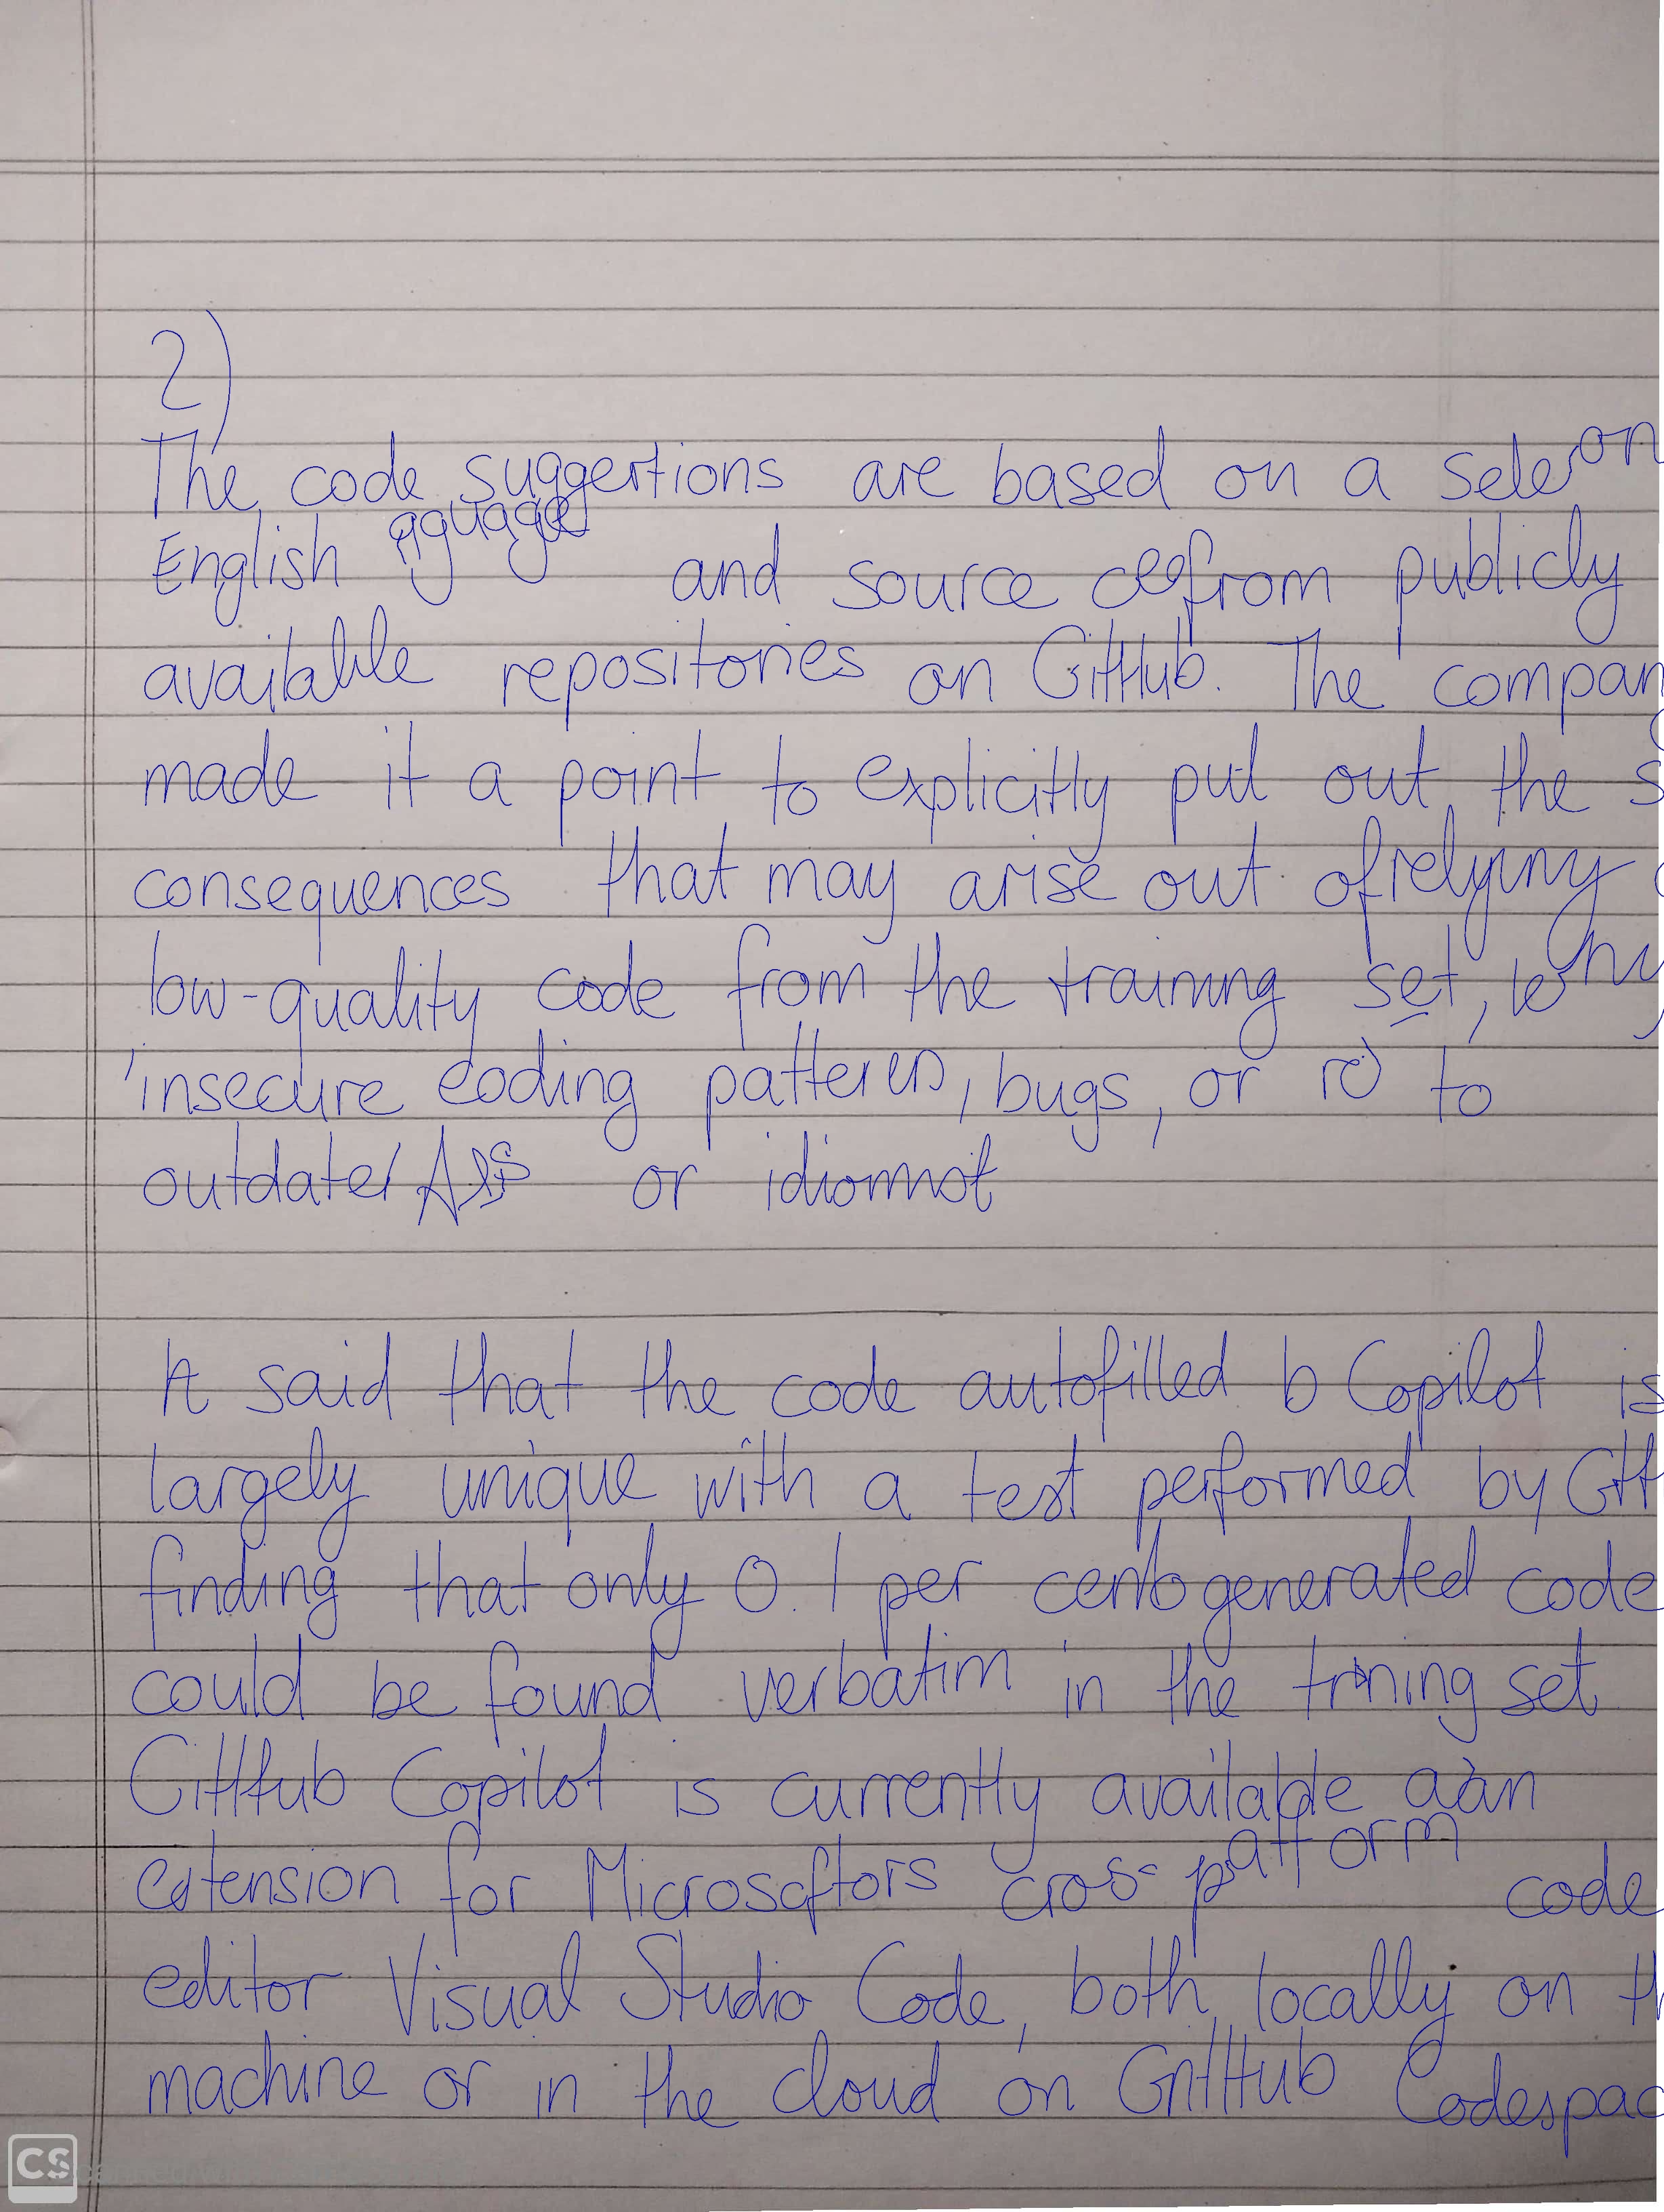 2)
The code suggestions are based on a
English and source from publicly
available repositories on GitHub. The compan
made it a point to explicitly put out the s
consequences that may arise out of relying
low-quality code from the training set,
insecure coding patteren, bugs, or to
or
It said that the code autofilled b Copilot is
largely unique with a test performed by GitH
finding that only 0.1 per cent generated code
could be found verbatim in the trining set
GitHub Copilot is currently available aan
extension for cross-platform code
editor Visual Studio Code, both locally on th
machine or in the cloud on GitHub Codespac
CS